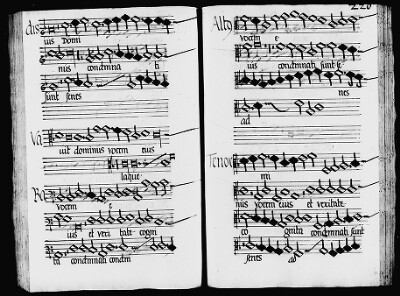 dis
ius Domi
nus condemna ti
sunt septes
Va
uit dominus vocem eius
laquc
Ba
vocem e
ius et veri tatc cogni
ta condemnati condem
220
Alto
vocem e
ius condemnati sunt se
nes
ad
Tenor
mi
nus vocem eius et veritate
co gnita condemnati sunt
senes ad